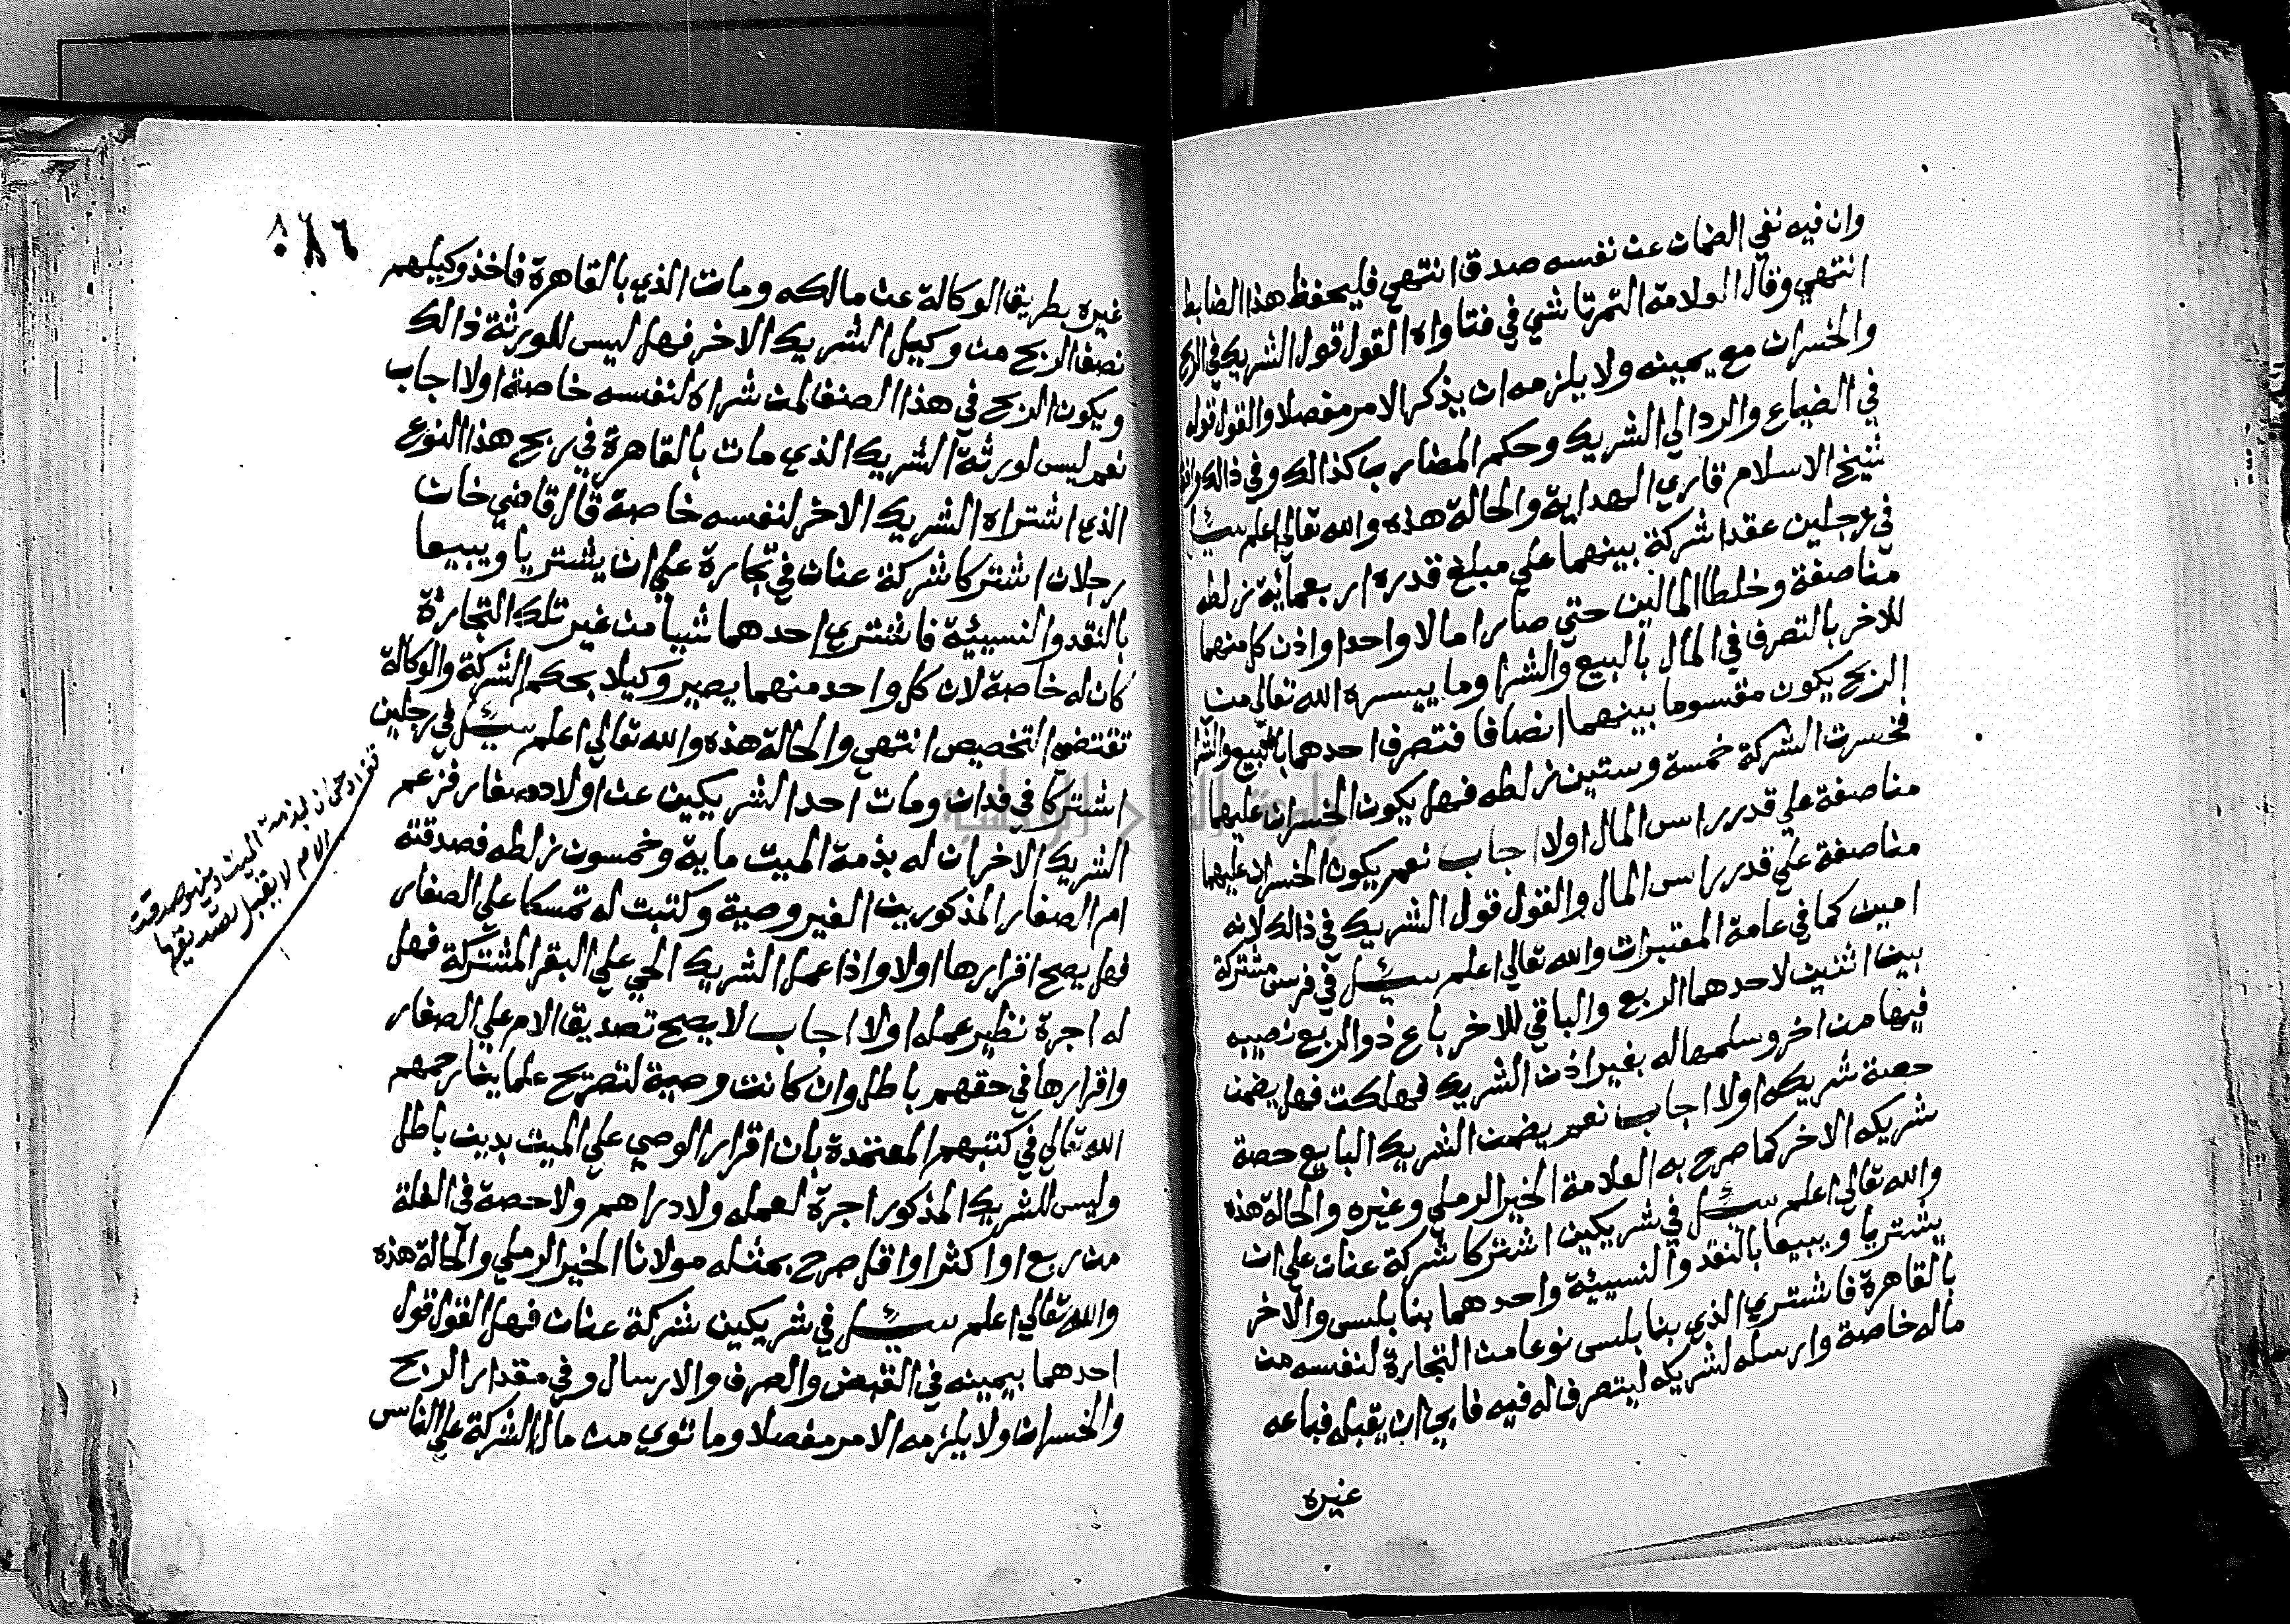 وان فيه نفي الضمان عن نفسه صدق انتهي فليحفظ هذا الضابط
انتهي وقال العلامة التمرتاشي في فتاواه القول قول الشريك في الربح
والخسران مع يمينه ولا يلزمه ان يذكر الامر مفصلا والقول قوله
في الضياع والرد الي الشريك وحكم المضارب كذالك وفي ذالك افتا
شيخ الاسلام قاري الهداية والحالة هذه والله تعالي اعلم سئل
في رجلين عقدا شركة بينهما علي مبلغ قدره اربعماية زلطه
مناصفة وخلطا المالين حتي صارا مالا واحدا واذن كل منهما
للاخر بالتصرف في المال بالبيع والشرا وما ييسره الله تعالي من
الربح يكون مقسوما بينهما انصافا فتصرف احدهما بالبيع والشرا
فخسرت الشركة خمسة وستين زلطه فهل يكون الخسران عليهما
مناصفة علي قدر راس المال اولا اجاب نعم يكون الخسران عليهما
مناصفة علي قدر راس المال والقول قول الشريك في ذالك لانه
امين كما في عامة المعتبرات والله تعالي اعلم سئل في فرس مشتركة
بين اثنين لاحدهما الربع والباقي للاخر باع ذو الربع نصيبه
فيها من اخر وسلمها له بغير اذن الشريك فهلكت فهل يضمن
حصة شريكه اولا اجاب نعم يضمن الشريك البايع حصة
شريكه الاخر كما صرح به العلامة الخير الرملي وغيره والحالة هذه
والله تعالي اعلم سئل في شريكين اشتركا شركة عنان علي ان
يشتريا ويبيعا بالنقد والنسيئة واحدهما بنابلس والاخر
بالقاهرة فاشتري الذي بنابلس نوعا من التجارة لنفسه من
ماله خاصة وارسله لشريكه ليتصرف له فيه فابي ان يقبله فباعه
غيره
٠٨٦
غيره بطريق الوكالة عن مالكه ومات الذي بالقاهرة فاخذ وكيلهم
نصف الربح من وكيل الشريك الاخر فهل ليس للورثة ذالك
ويكون الربح في هذا الصنف لمن شراه لنفسه خاصة اولا اجاب
نعم ليس لورثة الشريك الذي مات بالقاهرة في ربح هذا النوع
الذي اشتراه الشريك الاخر لنفسه خاصة قال قاضي خان
رجلان اشتركا شركة عنان في تجارة علي ان يشتريا ويبيعا
بالنقد والنسيئة فاشتري احدهما شيا من غير تلك التجارة
كان له خاصة لان كل واحد منهما يصير وكيلا بحكم الشركة والوكالة
تقتضي التخصيص انتهي والحالة هذه والله تعالي اعلم سئل في رجلين
اشتركا في فدان ومات احد الشريكين عن اولاد صغار فزعم
الشريك الاخر ان له بذمة الميت ماية وخمسون زلطه فصدقته
ام الصغار المذكورين الغير وصية وكتبت له تمسكا علي الصغار
فهل يصح اقرارها اولا واذا عمل الشريك الحي علي البقر المشتركة فهل
له اجرة نظير عمله اولا اجاب لا يصح تصديق الام علي الصغار
واقرارها في حقهم باطل وان كانت وصية لتصريح علماينا رحمهم
الله تعالي في كتبهم المعتمدة بان اقرار الوصي علي الميت بدين باطل
وليس للشريك المذكور اجرة لعمله ولا دراهم ولا حصة في الغلة
من ربع او اكثر او اقل صرح بمثله مولانا الخير الرملي والحالة هذه
والله تعالي اعلم سئل في شريكين شركة عنان فهل القول قول
احدهما بيمينه في القبض والصرف والارسال وفي مقدار الربح
والخسران ولا يلزمه الامر مفصلا وما توي من مال الشركة علي الناس
ان بذمة الميت دين وصدقت
الام لا يقبل تصديقها